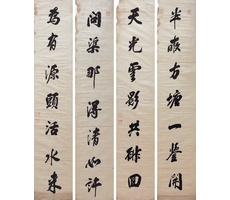 半畝方塘一鑒開
天光雲影共徘回
問渠那得清如許
為有源頭活水來